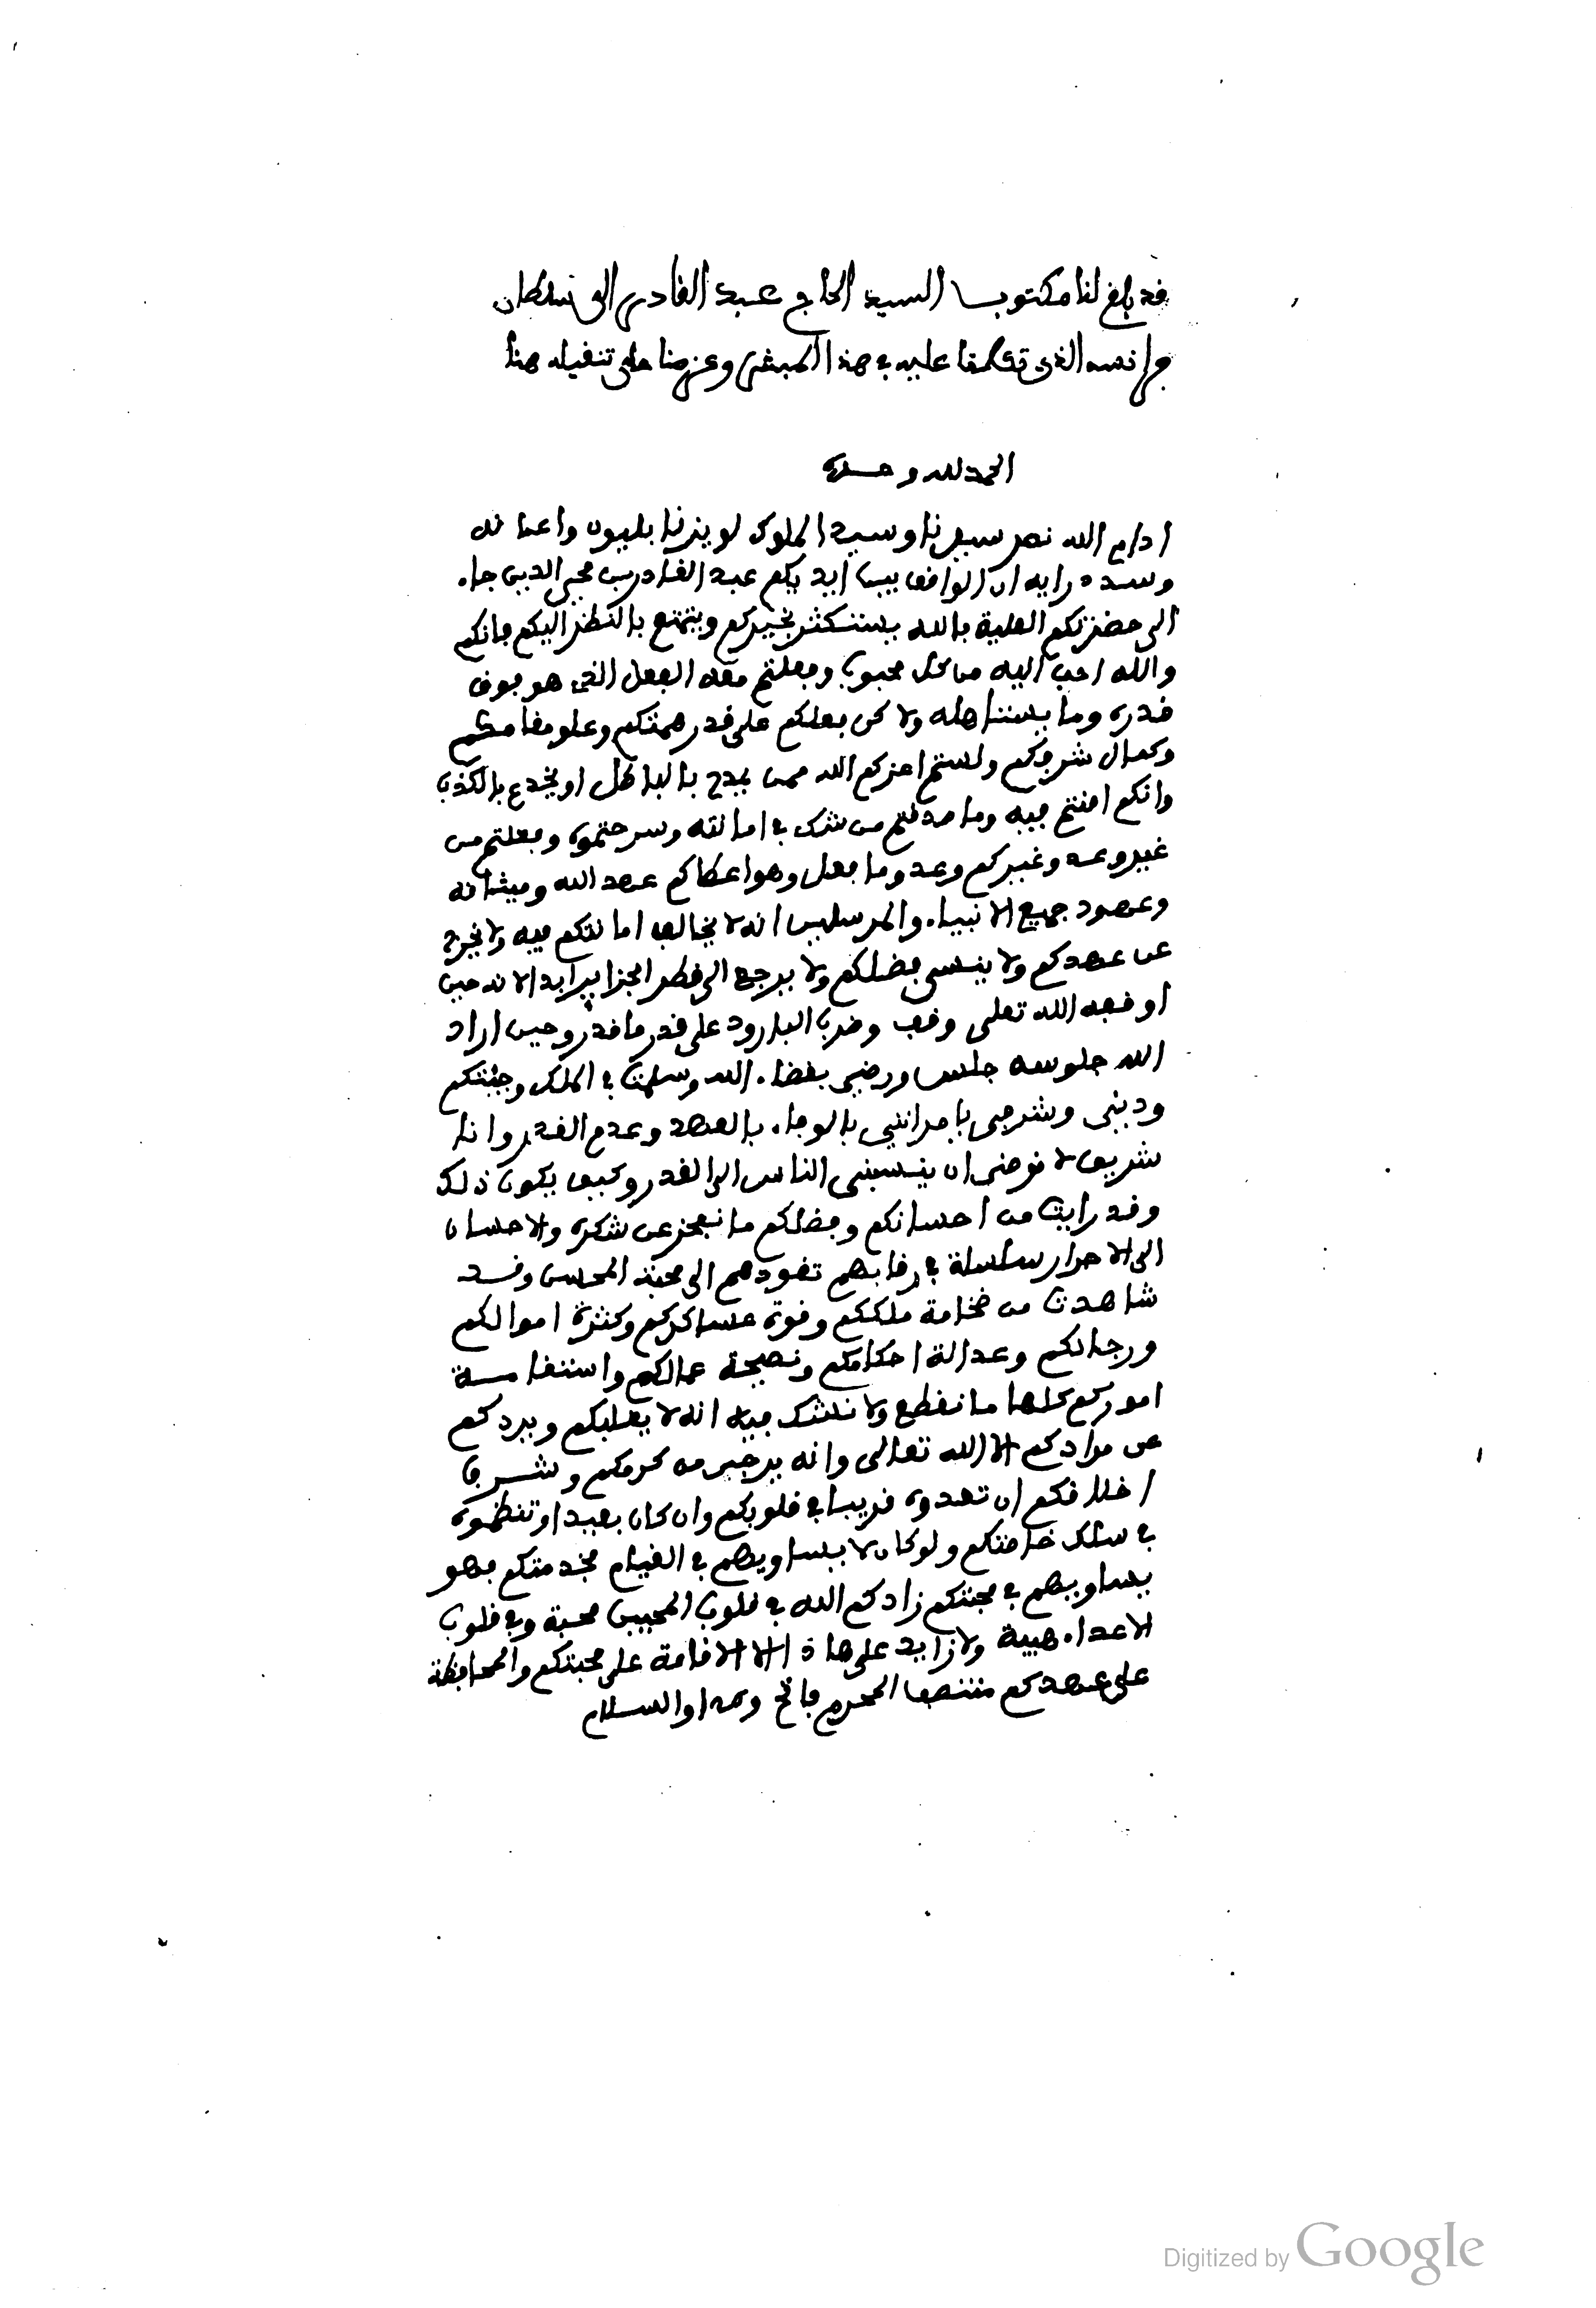 قد بلغ لنا مكتوب السيد الحاج عبد القادر الى سلطان
فرانسه الذى تكلمنا عليه في هذا المبشر وعزمنا على تنقيله هنا
الحمد لله وحده
ادام الله نصر سيدنا وسيد الملوك لويزنا بليون واعانه
وسدد رايه ان الواقف بين ايديكم عبد القادر بن محي الدين جاء
الى حضرتكم العلية بالله يستكثر بخيركم ويتمتع بالنظر اليكم فانكم
والله احب اليه من كل محبوب وفعلتم معه الفعل الذي هو فوق
قدره وما يستاهله ولاكن فعلكم على قدر همتكم وعلو مقامكم
وكمال شرفكم ولستم اعزكم الله ممن يمدح بالباطل او يخدع بالكذب
وانكم امنتم فيه وما صدقتم من شك في امانته وسرحتموه وفعلتم من
غير وعد وغيركم وعد وما فعل وهو اعطاكم عهد الله وميثاقه
وعهود جميع الانبياء والمرسلين انه لا يخالف امانتكم فيه ولا يخرج
عن عهدكم ولا ينسى فضلكم ولا يرجع الى قطر الجزاير ابدا لانه حين
اوقفه الله تعلى وقف وضرب البارود على قدر ما قدر وحين اراد
الله جلوسه جلس ورضي بقضاء الله وسلمت في الملك وجئتكم
وديني وشرفي يامرانني بالوفاء بالعهد وعدم الغدر وانا
شريف لا نرضى ان ينسبني الناس الى الغدر وكيف يكون ذلك
وقد رايت من احسانكم وفضلكم ما نعجز عن شكره والاحسان
الى الاحرار سلسلة في رقابهم تقودهم الى محبة المحسن وقد
شاهدت من فخامة ملككم وقوة عساكركم وكثرة اموالكم
ورجالكم وعدالة احكامكم ونصيحة عمالكم واستقامة
اموركم كلها ما نقطع ولا نشك فيه انه لا يغلبكم ويردكم
عن مرادكم الا الله تعالى وانه يرجى من كرمكم وشرف
اخلاقكم ان تعدوه قريبا في قلوبكم وان كان بعيدا وتنظموه
في سلك خاصتكم ولو كان لا يساويهم في القيام بخدمتكم فهو
يساويهم في محبتكم زادكم الله في قلوب المحبين محبة وفي قلوب
الاعداء هيبة ولا زايد على هاذا الا الاقامة على محبتكم والمحافظة
على عهدكم منتصف المحرم فاتح والسلام